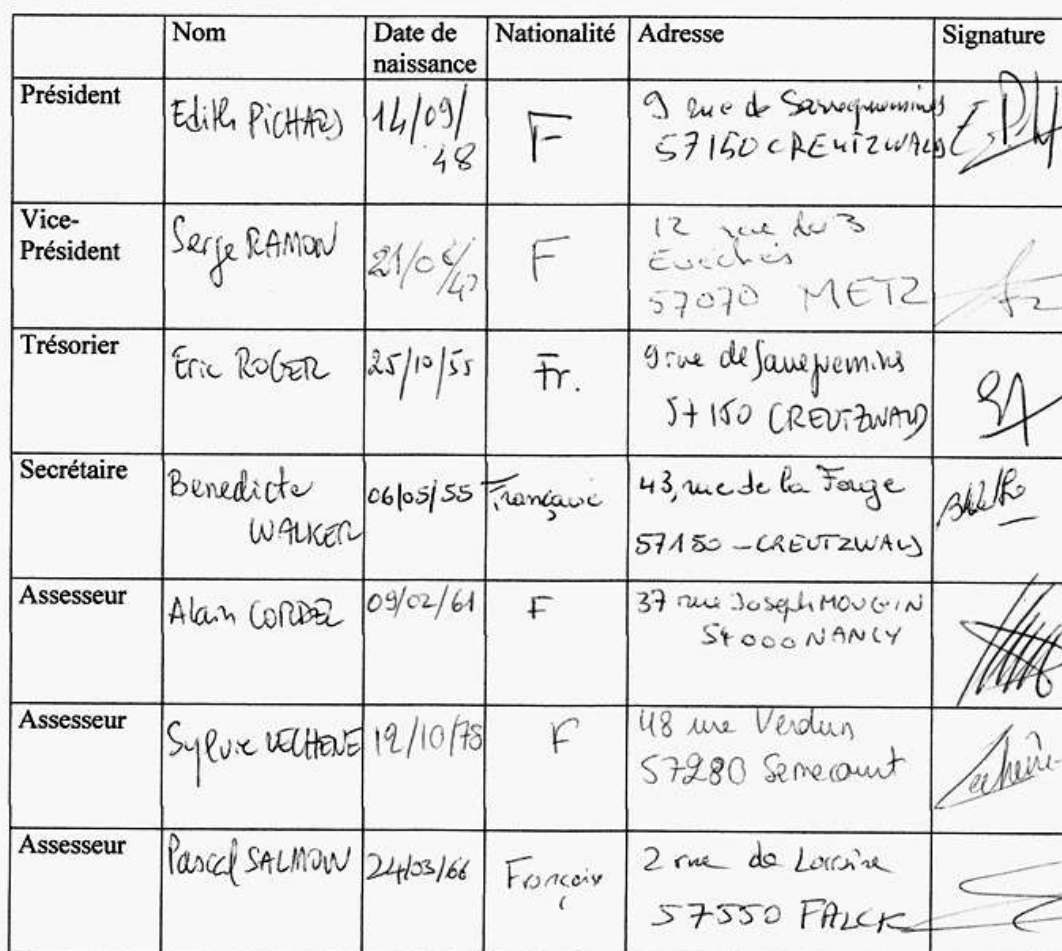 Nom Date de Nationalité Adresse Signature
naissance
Président Edith PICHARD 14/09/ F 9 rue de Sarreguemines
48 57150 CREUTZWALD
Vice- Serge RAMON F 12 rue des 3
Président Evechés
57070 METZ
Trésorier Eric ROGER 25/10/55 Fr. 9 rue de Sarreguemines
57150 CREUTZWALD
Secrétaire Benedicte 06/05/55 Française 43, rue de la Forge
WALKER 57150 - CREUTZWALD
Assesseur Alain CORDEL 09/02/61 F 37 rue Joseph MOUGIN
54000 NANCY
Assesseur Sylvie LECHENE 12/10/78 F 48 rue Verdun
57280 Semecourt
Assesseur Pascal SALMON 24/03/66 Français 2 rue de Lorraine
57550 FALCK